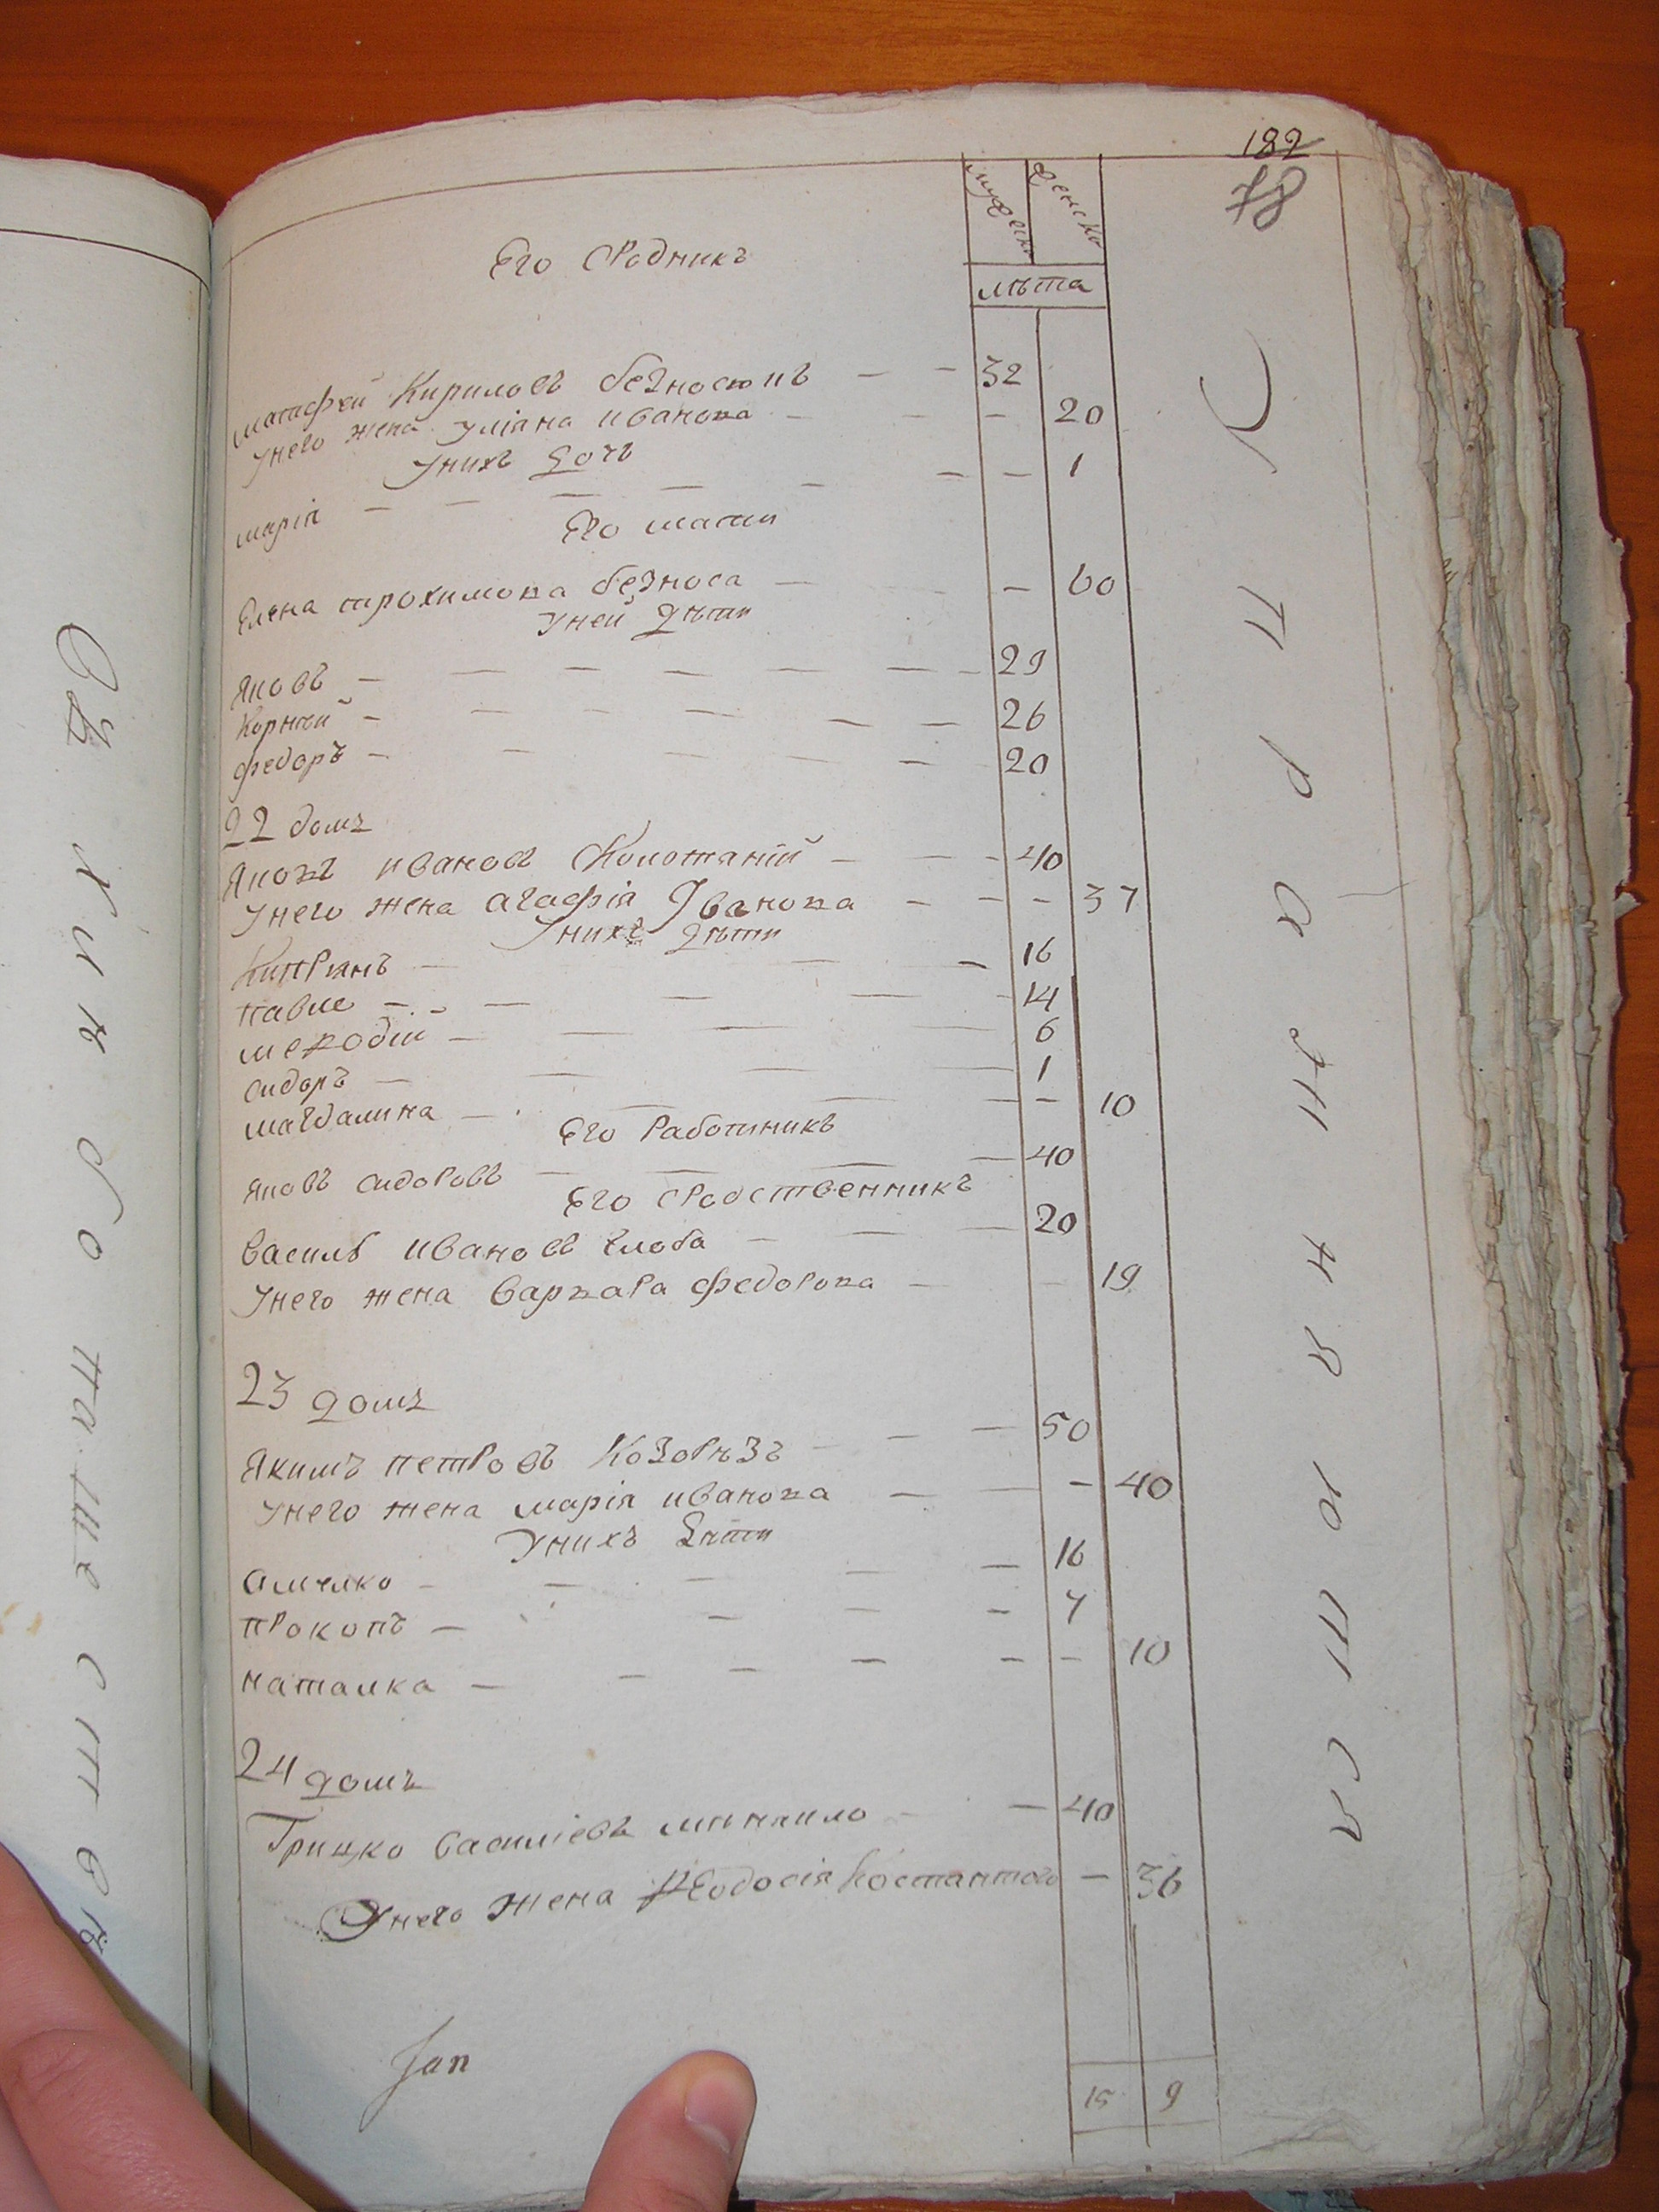 182
78
мужеска
женска
лѣта
Его сродникъ
матфей Кириловъ безносюнъ — — 32
унего жена уліана иванова — — — 20
унихъ дочъ
марія — — — — — — — 1
Его мати
Елена трохимова безноса — — 60
уней дѣти
яковъ — — — — — — — 29
Корнѣй — — — — — — 26
федоръ — — — — 20
22 домъ
яковъ ивановъ — — — 40
унего жена агафія Иванова — — — 37
унихъ дѣти
Киприянъ — — — 16
павле — — — — — 14
меѳодій — — — — 6
сидоръ — — — — 1
магдалина — — — — — 10
Его работникъ
яковъ сидоровъ — — — — 40
Его сродственникъ
василь ивановъ глоба — — — 20
унего жена варвара федорова — — 19
23 домъ
якимъ петровъ Козорѣзъ — — — 50
унего жена марія иванова — — — 40
унихъ дѣти
амелко — — — — — 16
прокопъ — — — — 7
наталка — — — — — — 10
24 домъ
Грицко василіевъ — — 40
Унего жена Ѳеодосія Костантого — 36
15 9